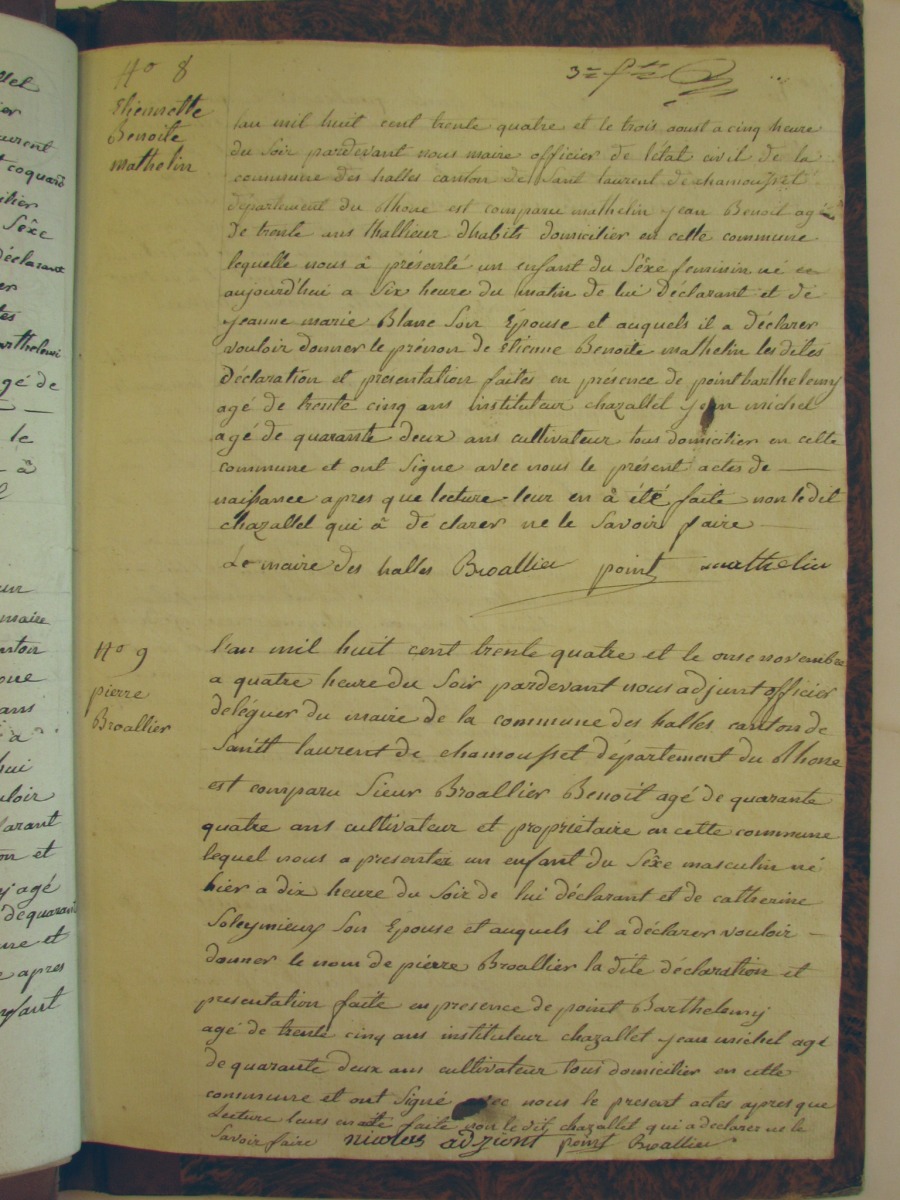 No 8
3me flle
Etiennette
Benoite
mathelin
lan mil huit cent trente quatre et le trois aoust a cinq heure
du Soir pardevant nous maire officier de létat civil de la
commune des halles canton de Saint laurent de chamousset
département du Rhone est comparu mathelin jean Benoit agé
De trente ans thallieur dhabits domicilier en cette commune
lequelle nous â presenté un enfant du Sêxe feminin né ce
aujourd'hui a Six heure du matin de lui Déclarant et de
jeanne marie Blanc Son Epouse et auquels il a déclarer
vouloir donner le prénon de Etienne Benoite mathelin les dites
déclaration et presentation faites en présence de point barthelemy
agé de trente cinq ans instituteur chazallet jean michel
agé de quarante deux ans cultivateur tous domicilier en cette
commune et ont Signe avec nous le présent actes de —
naissance apres que lecture leur en â été faite non ledit
chazallet qui â de clarer ne le Savoir faire —
Le maire des halles Broallier point mathelin
No 9
pierre
Broallier
l'an mil huit cent trente quatre et le onse novembre
a quatre heure du Soir pardevant nous adjunt officier
deléguer du maire de la commune des halles canton de
Saintt laurent de chamousset département du Rhone
est comparu Sieur Broallier Benoit agé de quarante
quatre ans cultivateur et propriétaire en cette commune
lequel nous a presenter un enfant du Sêxe masculin né
hier a dix heure du Soir de lui déclarant et de catherine
Soleymieux Son Epouse et auquels il a déclarer vouloir —
donner le nom de pierre Broallier la dite déclaration et
presentation faite en presence de point Barthelemy
agé de trente cinq ans instituteur chazallet jean michel agé
de quarante deux ans cultivateur tous domicilier en cette
commune et ont Signé avec nous le present actes apres que
Lecture leurs en a été faite non le dit chazallet qui a declarer ne le
Savoir faire nicolas adziont point Broallier